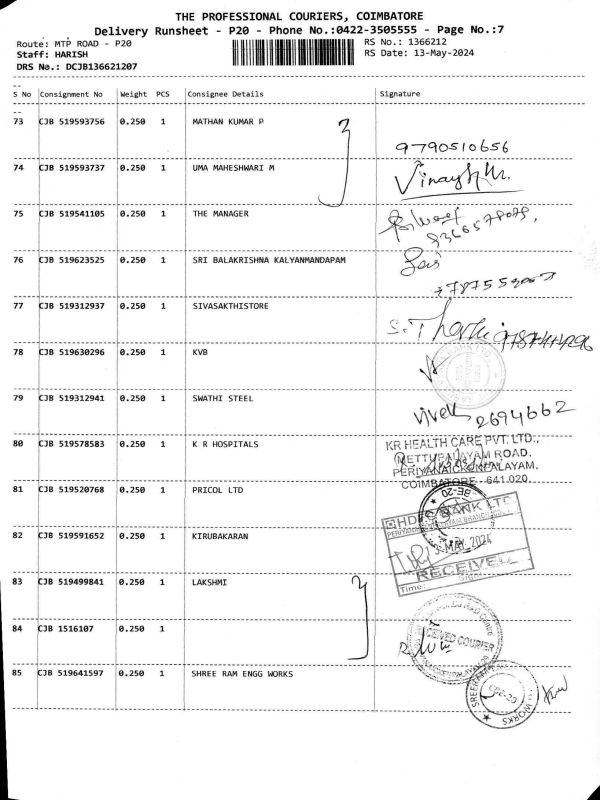 THE PROFESSIONAL COURIERS, COIMBATORE
Delivery Runsheet - P20 - Phone No.:0422-3505555 - Page No.:7
Route: MTP ROAD - P20
RS No.: 1366212
Staff: HARISH
RS Date: 13-May-2024
DRS No.: DCJB136621207
S No Consignment No Weight PCS Consignee Details Signature
73 CJB 519593756 0.250 1 MATHAN KUMAR P
9790510656
74 CJB 519593737 0.250 1 UMA MAHESHWARI M
75 CJB 519541105 0.250 1 THE MANAGER
76 CJB 519623525 0.250 1 SRI BALAKRISHNA KALYANMANDAPAM
77 CJB 519312937 0.250 1 SIVASAKTHISTORE
78 CJB 519630296 0.250 1 KVB
79 CJB 519312941 0.250 1 SWATHI STEEL
Vivek 2694662
80 CJB 519578583 0.250 1 K R HOSPITALS
KR HEALTH CARE PVT. LTD.,
METTUPALAYAM ROAD,
PERIYANAICKENPALAYAM,
COIMBATORE - 641 020.
81 CJB 519520768 0.250 1 PRICOL LTD
HDFC BANK LTD
82 CJB 519591652 0.250 1 KIRUBAKARAN
MAY 2024
RECEIVED
Time:
Sign:
83 CJB 519499841 0.250 1 LAKSHMI
84 CJB 1516107 0.250 1
RECEIVED COURIER
85 CJB 519641597 0.250 1 SHREE RAM ENGG WORKS
CBE-20
WORKS